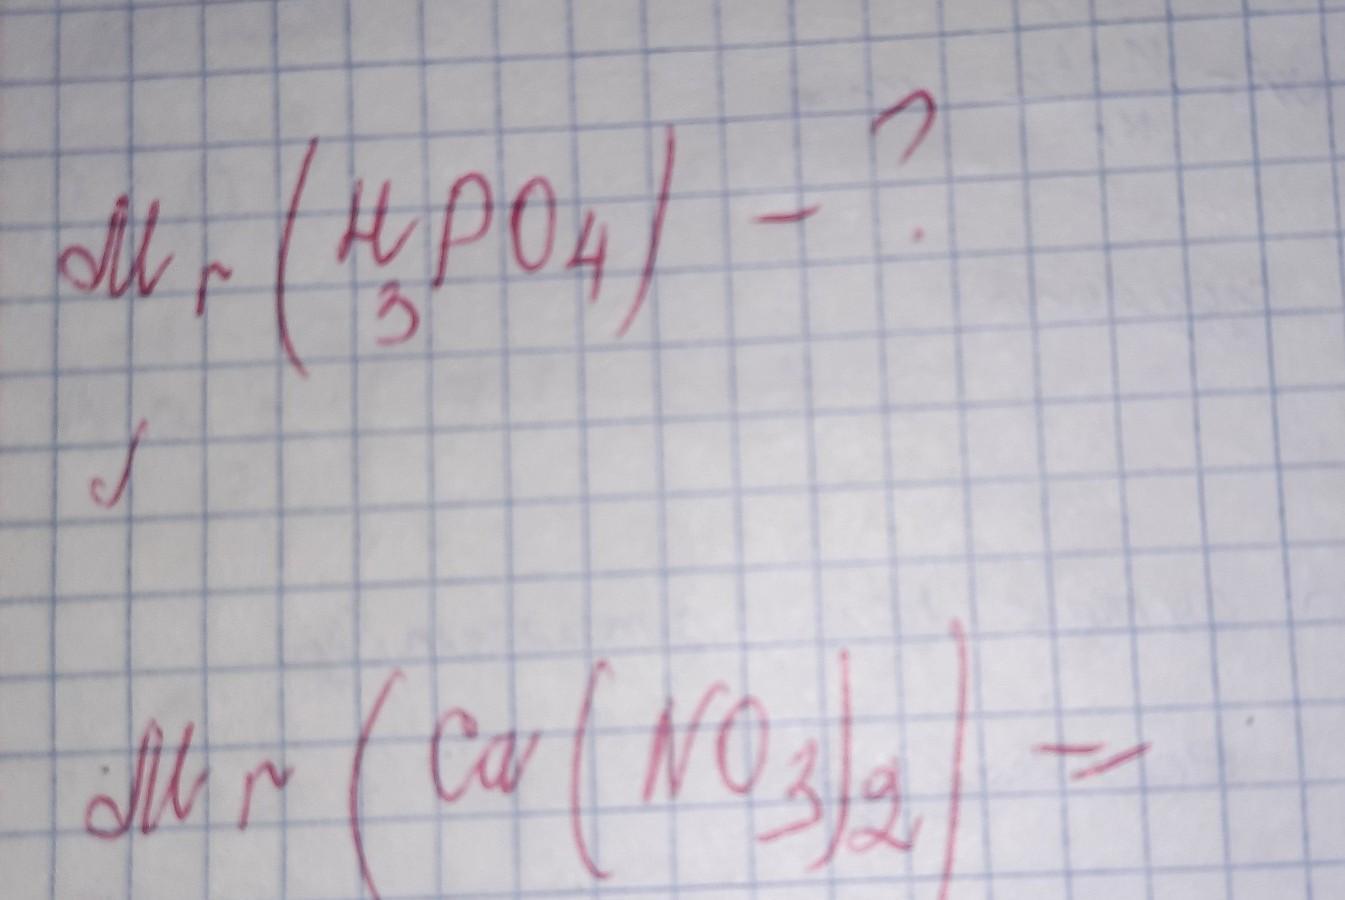 Mr (H3PO4) - ?
Mr (Ca(NO3)2) =